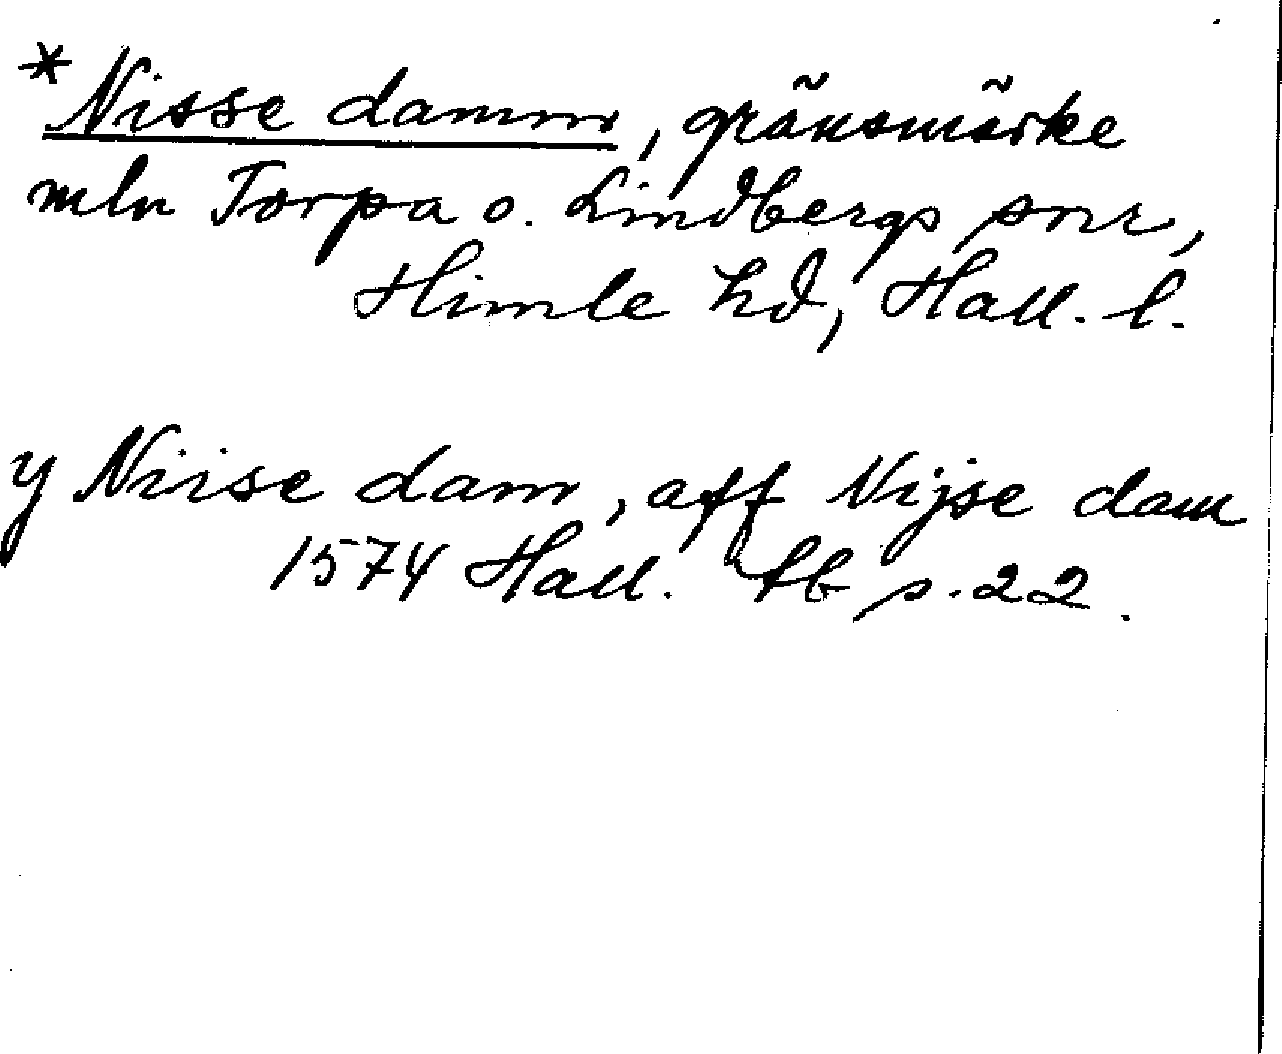 * Nisse damm, gränsmärke
mln Torpa o. Lindbergs snr,
Himle hd, Hall. l.
y Niise dam, aff Nijse dam
1574 Hall. tb s. 22.